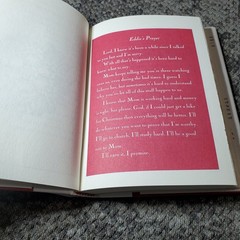 Eddie's Prayer
Lord, I know it's been a while since I talked
to you but and I'm sorry.
With all that's happened it's been hard to
know what to say.
Mom keeps telling me you're there watching
over me, even during the bad times. I guess I
believe her, but sometimes it's hard to understand
why you'd let all of this stuff happen to us.
I know that Mom is working hard and money
is tight, but please, God, if I could just get a bike
for Christmas then everything will be better. I'll
do whatever you want to prove that I'm worthy.
I'll go to church. I'll study hard. I'll be a good
son to Mom.
I'll earn it, I promise.